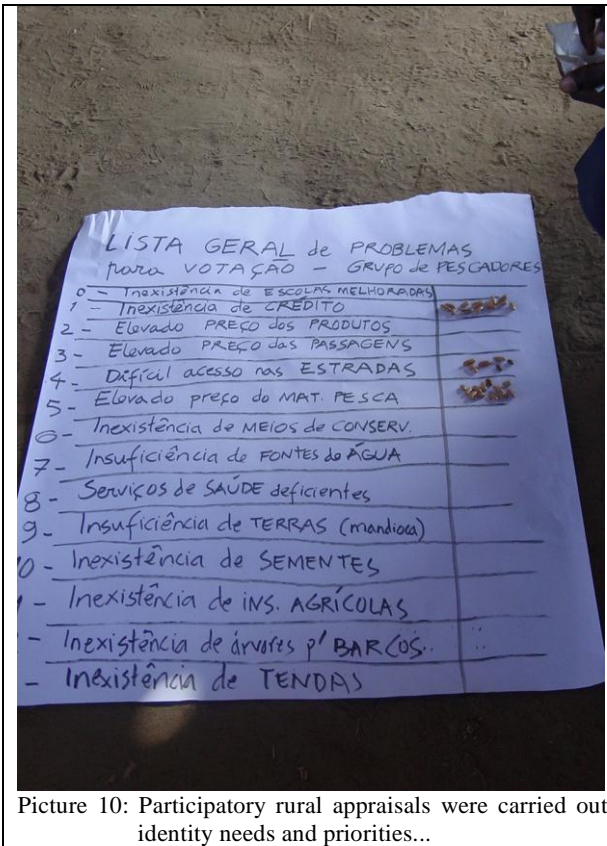 LISTA GERAL de PROBLEMAS
para VOTAÇÃO - GRUPO de PESCADORES
0 - Inexistência de ESCOLAS MELHORADAS
1 - Inexistência de CRÉDITO
2 - Elevado PREÇO dos PRODUTOS
3 - Elevado PREÇO das PASSAGENS
4 - Difícil acesso nas ESTRADAS
5 - Elevado preço do MAT. PESCA
6 - Inexistência de MEIOS de CONSERV.
7 - Insuficiência de FONTES de ÁGUA
8 - Serviços de SAÚDE deficientes
9 - Insuficiência de TERRAS (mandioca)
0 - Inexistência de SEMENTES
- Inexistência de INS. AGRÍCOLAS
- Inexistência de árvores p' BARCOS.
- Inexistência de TENDAS
Picture 10: Participatory rural appraisals were carried out
identity needs and priorities...